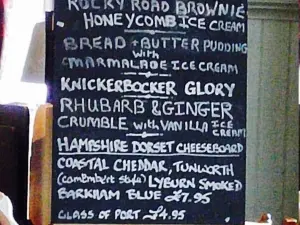 ROCKY ROAD BROWNIE
HONEYCOMB ICE CREAM
BREAD + BUTTER PUDDING
with
MARMALADE ICE CREAM
KNICKERBOCKER GLORY
RHUBARB & GINGER
CRUMBLE with VANILLA ICE CREAM
HAMPSHIRE DORSET CHEESEBOARD
COASTAL CHEDDAR, TUNWORTH
(camembert style) LYBURN SMOKED
BARKHAM BLUE £7.95
GLASS OF PORT £4.95